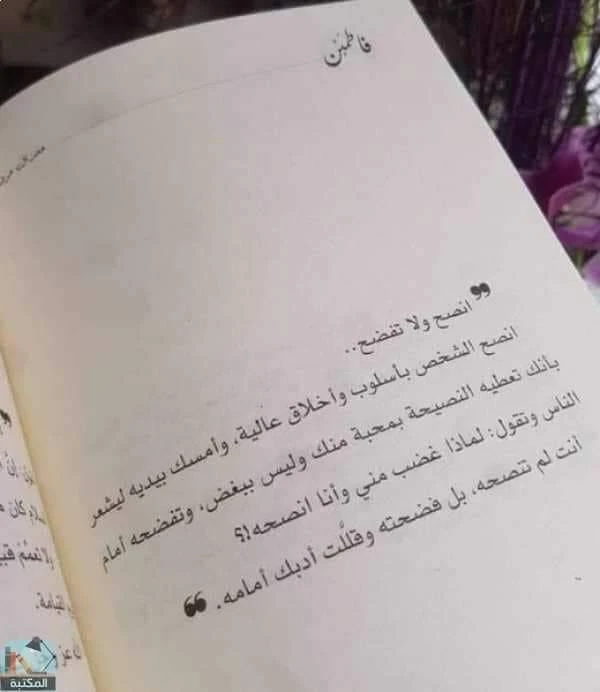 فاطمئن
❞ انصح ولا تفضح..
انصح الشخص بأسلوب وأخلاق عالية، وأمسك بيديه ليشعر
بأنك تعطيه النصيحة بمحبة منك وليس ببغض، وتفضحه أمام
الناس وتقول: لماذا غضب مني وأنا انصحه!؟
أنت لم تنصحه، بل فضحته وقللَّت أدبك أمامه. ❝
ولا تعمَّم
القيامة.
المكتبة